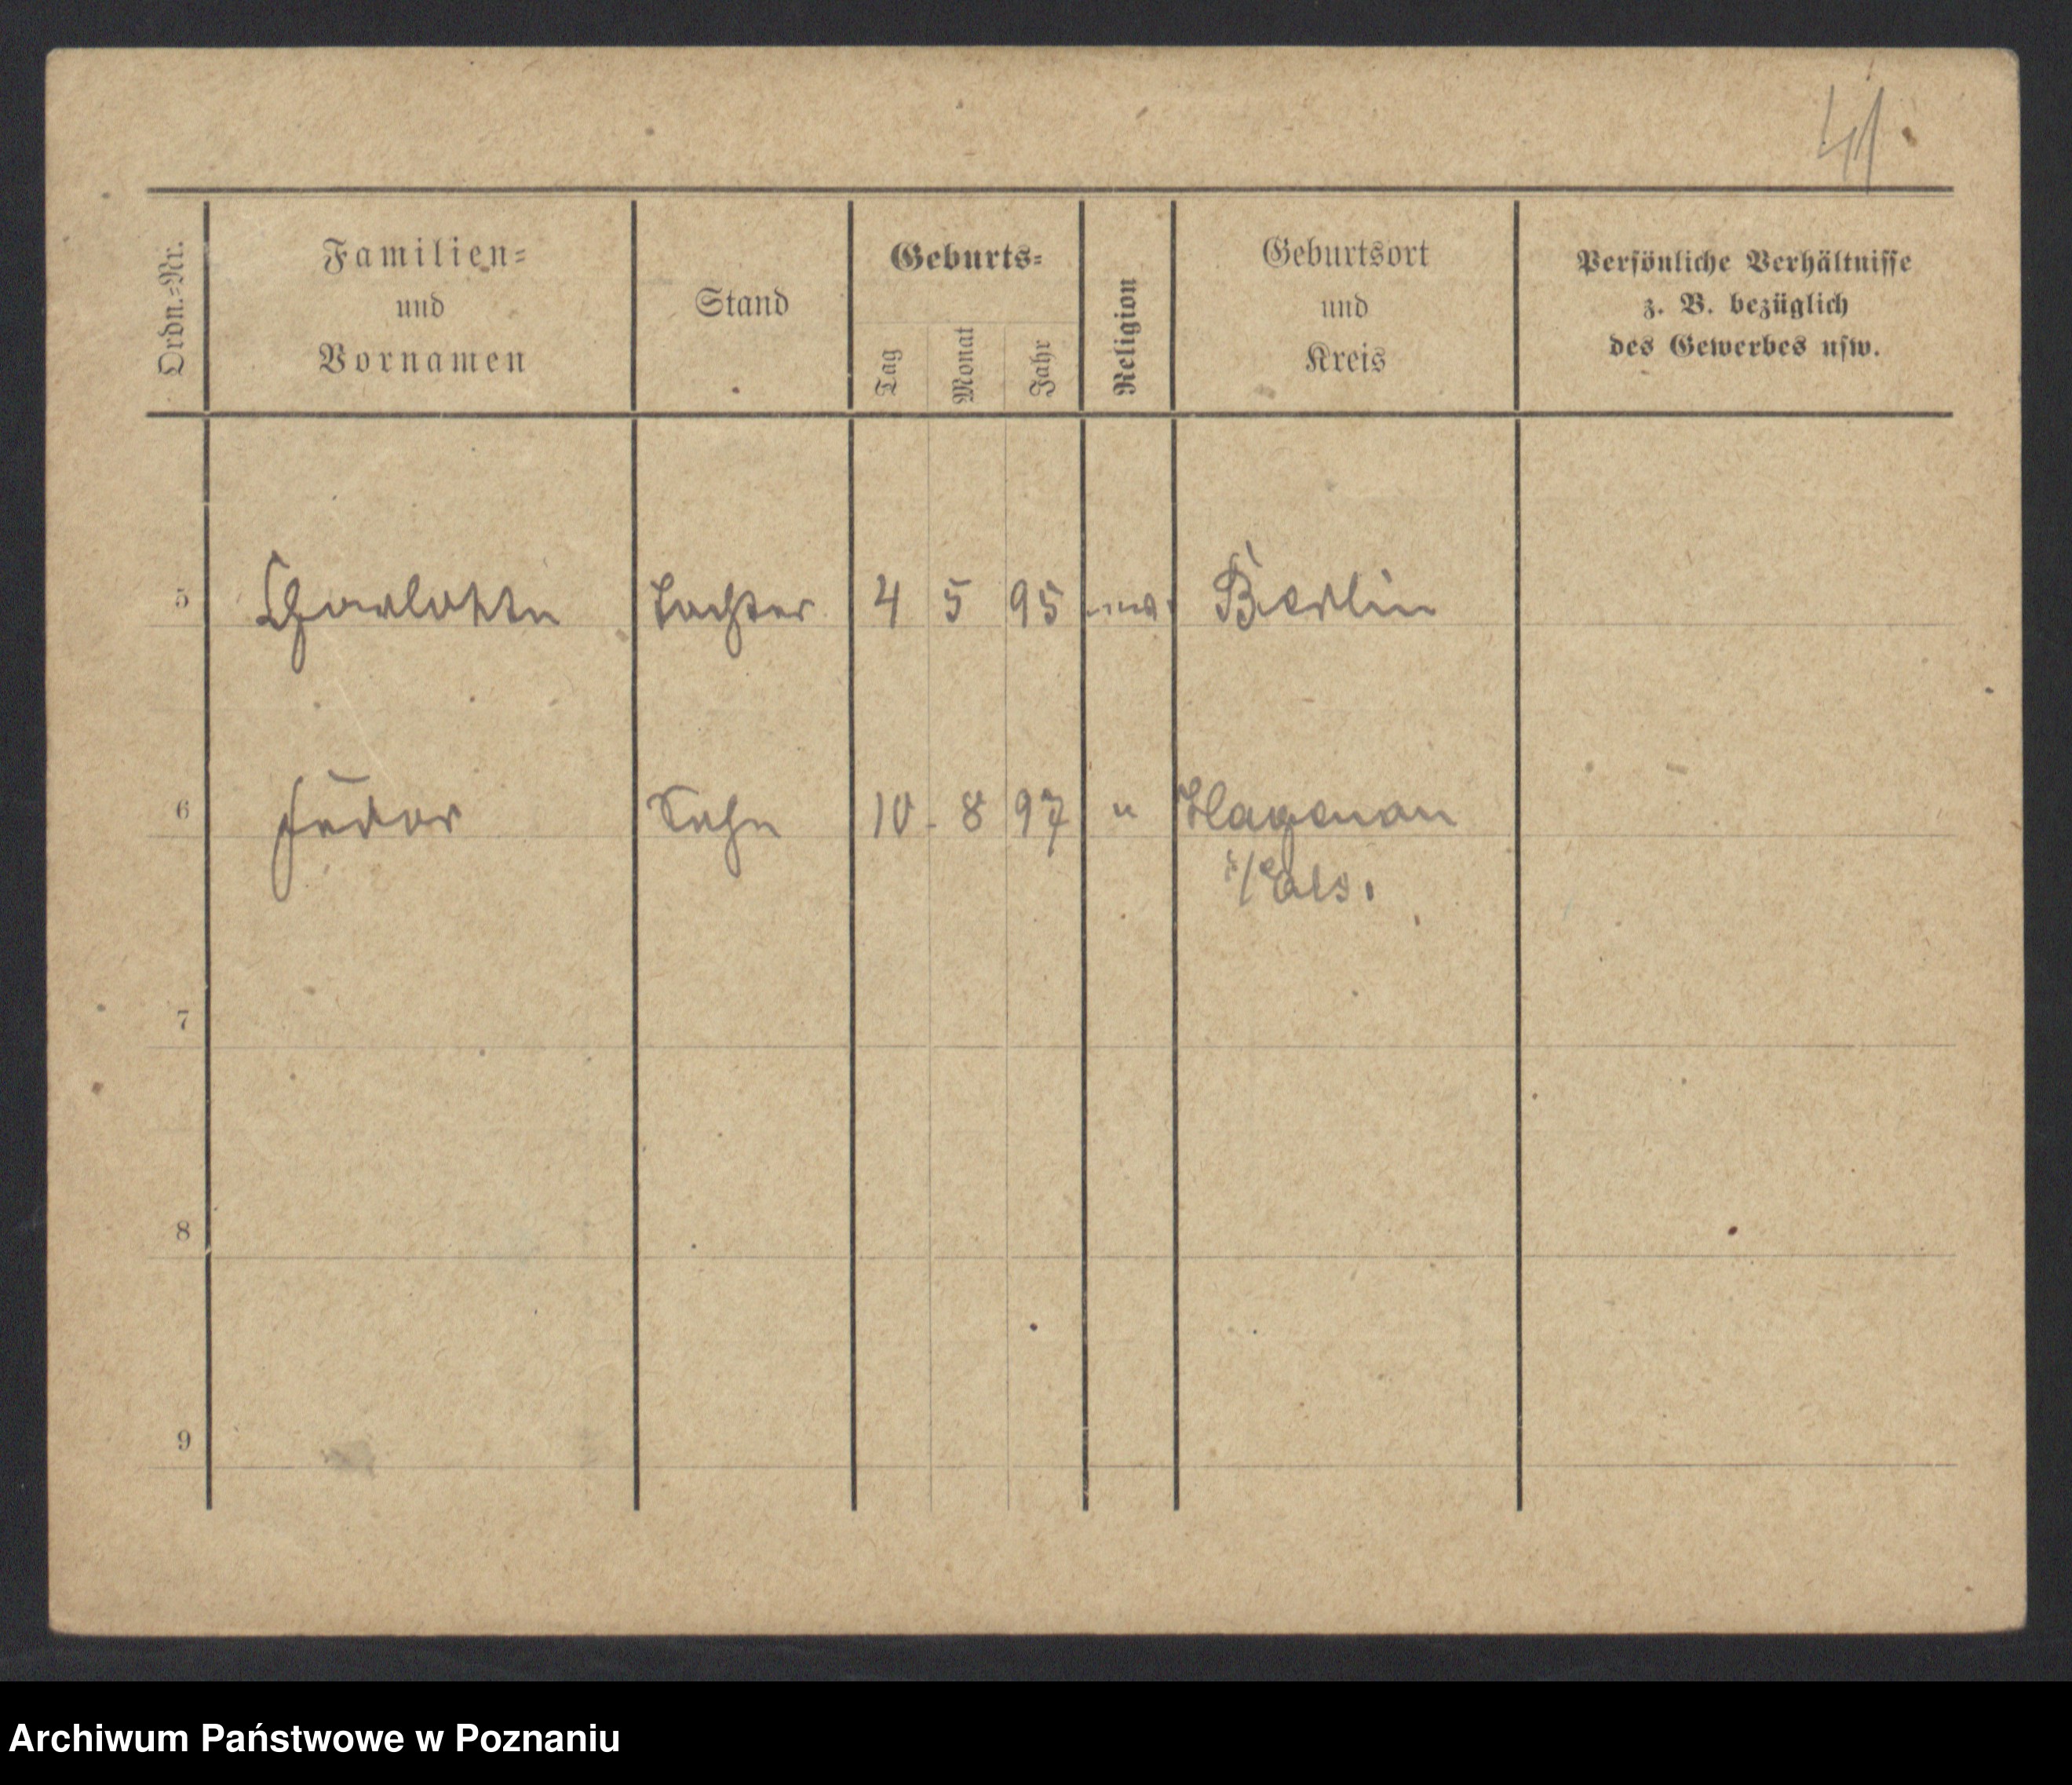 41.
Ordn.-Nr.
Familien-
und
Vornamen
Stand
Geburts-
Tag
Monat
Jahr
Religion
Geburtsort
und
Kreis
Persönliche Verhältnisse
z. B. bezüglich
des Gewerbes usw.
5 Charlotte Tochter 4 5 95 Berlin
6 Sohn 10 8 97 " Hagenau
i/Els.
7
8
9
Archiwum Państwowe w Poznaniu